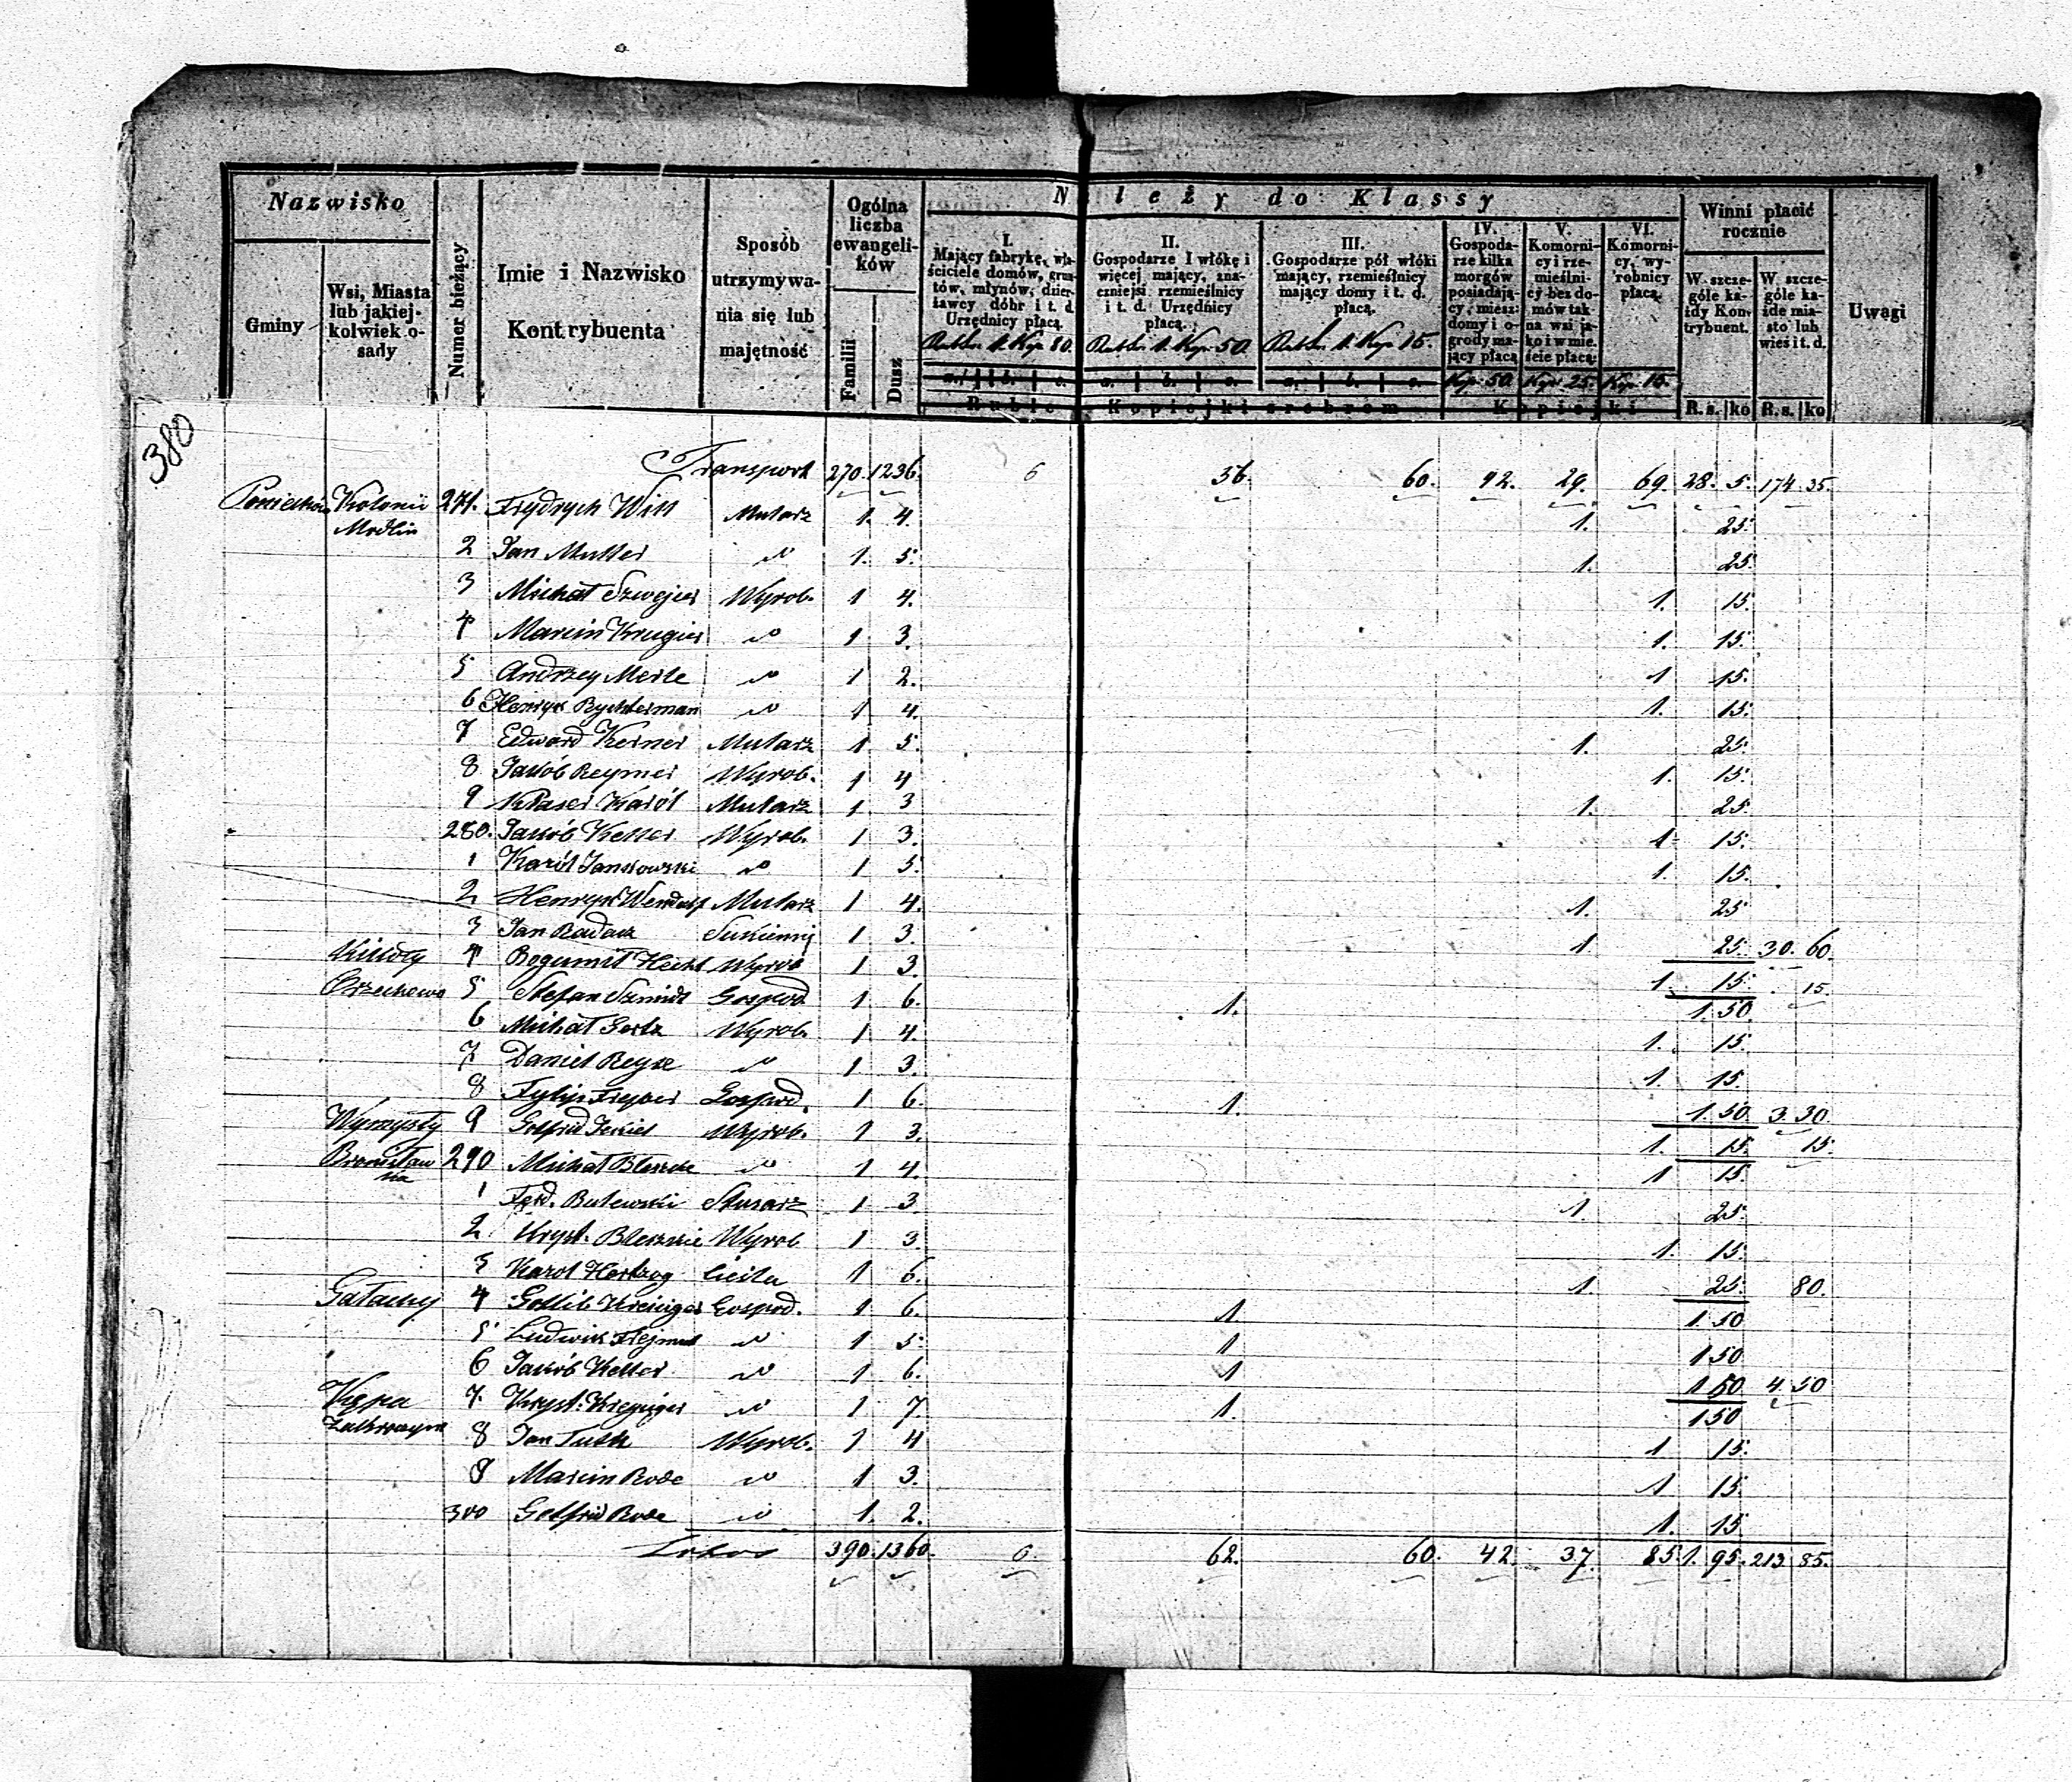 380
Nazwisko
Gminy
Wsi, Miasta lub jakiejkolwiek osady
Numer bieżący
Imie i Nazwisko Kontrybuenta
Sposób utrzymywania się lub majętność
Ogólna liczba ewangelików
Familii
Dusz
Należy do Klassy
I. Mający fabrykę, właściciele domów, gruntów, młynów, dzierżawcy dóbr i t. d. Urzędnicy płacą.
Rubli 1. Kop 80.
II. Gospodarze 1 włókę i więcej mający, znaczniejsi rzemieślnicy i t. d. Urzędnicy płacą.
Rubli 1. Kop. 50.
III. Gospodarze pół włóki mający, rzemieślnicy mający domy i t. d. płacą.
Rubli 1. Kop 15.
IV. Gospodarze kilka morgów posiadający, miesz: domy i ogrody mający płacą
Kop. 50.
V. Komornicy i rzemieślnicy bez domów tak na wsi jako i w mieście płacą:
Kop. 25.
VI. Komornicy, wyrobnicy płacą.
Kop. 15.
a. b. c. a. b. c. a. b. c.
Ruble Kopiejki srebrem Kopiejki
Winni płacić rocznie
W szczególe każdy Kontrybuent.
W szczególe każde miasto lub wieś i t. d.
R. s. ko R. s. ko
Uwagi
Transport 270. 1236. 6 56. 60. 42. 29. 69. 28. 5. 174. 35.
Kolonii Modlin 271. Frydrych Witt Mularz 1. 4. 1. 25.
2 Jan Muller " 1. 5. 1. 25.
3 Michał Szwejcer Wyrob. 1 4. 1. 15.
4 Marcin Krugier " 1 3. 1. 15.
5 Andrzey Merle " 1 2. 1 15.
6 Henryk Rychterman " 1 4. 1. 15.
7 Edward Kerner Mularz 1 5. 1. 25.
8 Jakób Reymer Wyrob. 1 4 1. 15.
9 Karól Mularz 1 3 1. 25.
280. Jakób Keller Wyrob. 1 3. 1 15.
1 Karól Jankowski " 1 5. 1. 15.
2 Henryk Mularz 1 4. 1. 25
3 Jan Sukienni 1 3. 1 25. 30. 60.
4 Bogumił Hecht Wyrob 1 3. 1. 15. 15.
Orzechowo 5 Stefan Szmidt Gospod. 1 6. 1. 1. 50.
6 Michał Gertz Wyrob. 1 4. 1. 15.
7 Daniel Reyse " 1 3. 1. 15.
8 Fylip Gospod. 1 6. 1. 1. 50. 3. 30.
Wymysły 9 Gotfrid Wyrob. 1 3. 1. 15. 15.
Bronisławka 290 Michał " 1 4. 1 15.
1 Ferd. Butewski Slusarz 1 3 1. 25.
2 Kryst. Wyrob 1 3. 1. 15.
3 Karol Hertzog Cieśla 1 6. 1. 25. 80.
Gałachy 4 Gottlib Gospod. 1 6. 1 1 50
5 Ludwik " 1 5. 1 1 50
6 Jakób Keller " 1 6. 1 1 50 4. 50
Kępa 7. Kryst. " 1 7. 1. 1 50
8 Jan Wyrob. 1 4 1 15.
9 Marcin Rode " 1 3. 1 15.
300 Gotfrid Rode " 1. 2. 1. 15
390. 1360. 6. 62. 60. 42. 37. 85. 1. 95. 213. 85.